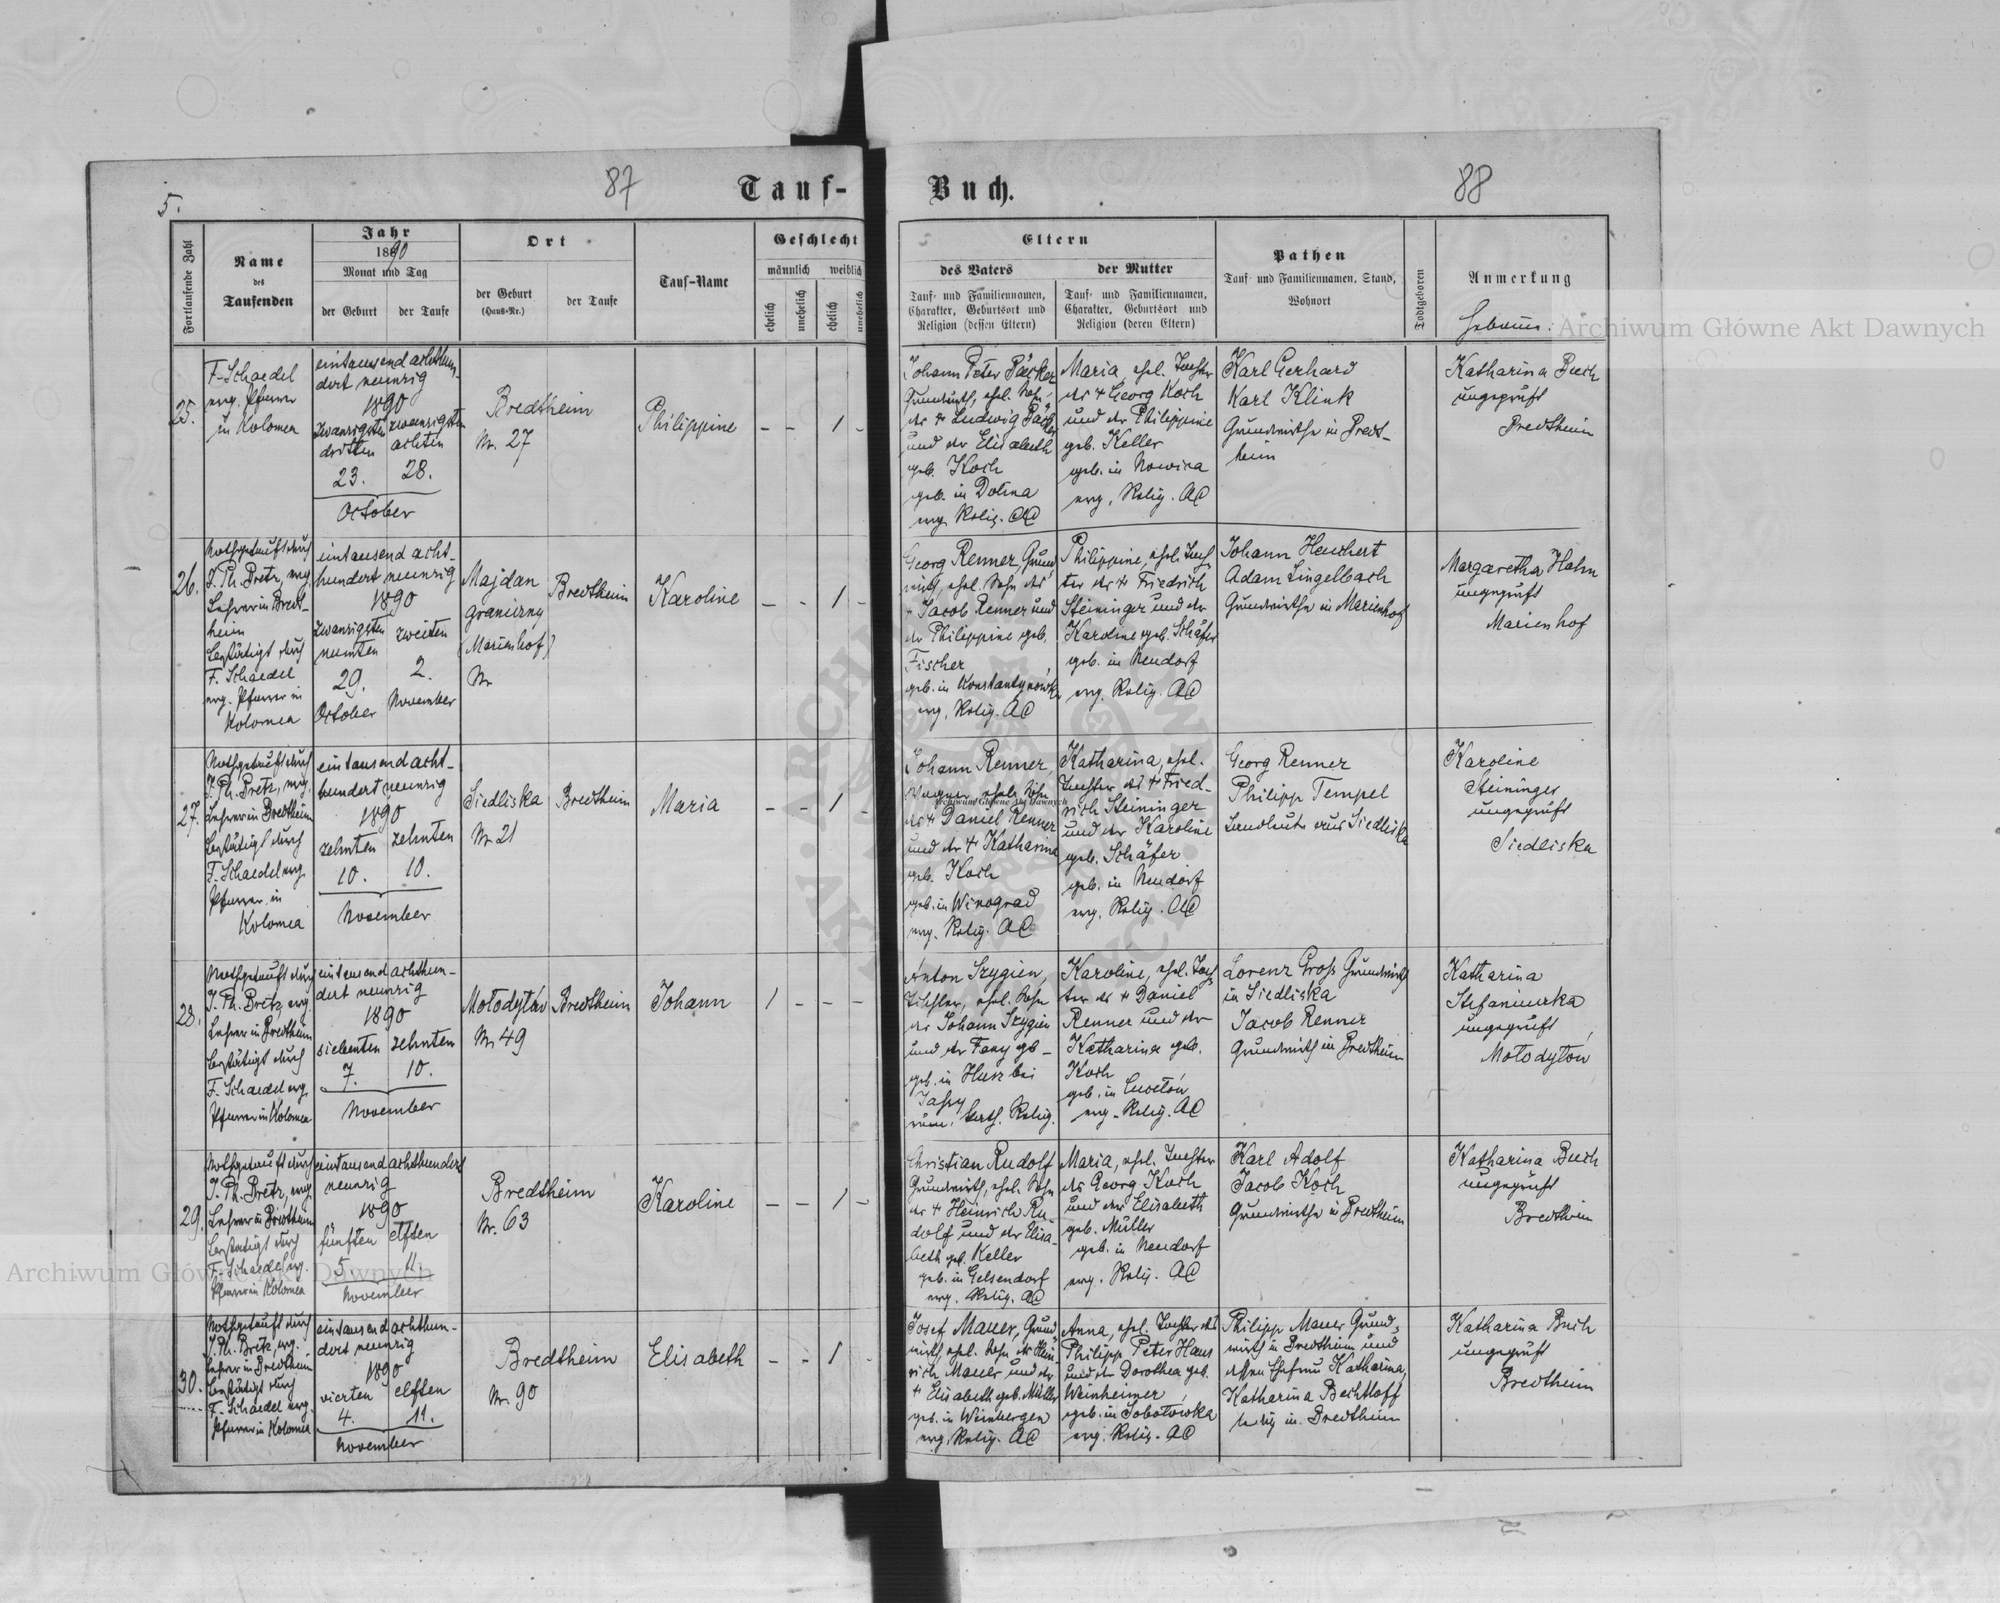 87
88
5.
Tauf-
Buch.
Fortlaufende Zahl
Name
des
Taufenden
Jahr
1890
Monat und Tag
der Geburt
der Taufe
Ort
der Geburt
(Haus-Nr.)
der Taufe
Tauf-Name
Geschlecht
männlich
weiblich
ehelich
unehelich
ehelich
unehelich
Eltern
des Vaters
Tauf- und Familiennamen,
Charakter, Geburtsort und
Religion (dessen Eltern)
der Mutter
Tauf- und Familiennamen,
Charakter, Geburtsort und
Religion (deren Eltern)
Pathen
Tauf- und Familiennamen, Stand,
Wohnort
Todtgeboren
Anmerkung
25.
F. Schaedel
evg. Pfarrer
in Kolomea
eintausend achthun-
dert neunzig
1890
zwanzigsten zwanzigsten
dritten achten
23. 28.
October
Bredtheim
Nr. 27
Philippine
- - 1 -
Johann Peter
Grundwirth, ehel. Sohn
des + Ludwig
und der Elisabeth
geb. Koch
geb. in Dolina
evg. Relig. AC
Maria, ehel. Tochter
des + Georg Koch
und der Philippine
geb. Keller
geb. in
evg. Relig. AC
Karl Gerhard
Karl Klink
Grundwirthe in Bredt-
heim
Katharina Buch
ungeprüft
Bredtheim
26.
Nothgetauft durch
J. Ph. Bretz, evg.
Lehrer in Bredt-
heim
bestätigt durch
F. Schaedel
evg. Pfarrer in
Kolomea
eintausend acht-
hundert neunzig
1890
zwanzigsten zweiten
neunten
29. 2.
October November
Majdan
graniczny
(Marienhof)
Nr
Bredtheim
Karoline
- - 1 -
Georg Renner, Grund
wirth, ehel. Sohn des
+ Jacob Renner und
der Philippine geb.
Fischer
geb. in Konstantynówka
evg. Relig. AC
Philippine, ehel. Toch
ter des + Friedrich
Steininger und der
Karoline geb. Schäfer
geb. in Neudorf
evg. Relig. AC
Johann Heuchert
Adam Lingelbach
Grundwirthe in Marienhof
Margaretha Hahn
ungeprüft
Marienhof
27.
Nothgetauft durch
J. Ph. Bretz, evg.
Lehrer in Bredtheim
bestätigt durch
F. Schaedel evg.
Pfarrer in
Kolomea
eintausend acht-
hundert neunzig
1890
zehnten zehnten
10. 10.
November
Siedliska
Nr 21
Bredtheim
Maria
- - 1 -
Johann Renner,
Wagner, ehel. Sohn
des + Daniel Renner
und der + Katharina
geb. Koch
geb. in Winograd
evg. Relig. AC
Katharina, ehel.
Tochter des + Fried-
rich Steininger
und der Karoline
geb. Schäfer
geb. in Neudorf
evg. Relig. AC
Georg Renner
Philipp Tempel
Landleute aus Siedliska
Karoline
Steininger
ungeprüft
Siedliska
28.
Nothgetauft durch
J. Ph. Bretz, evg.
Lehrer in Bredtheim
bestätigt durch
F. Schaedel evg.
Pfarrer in Kolomea
eintausend achthun-
dert neunzig
1890
siebenten zehnten
7. 10.
November
Mołodyłów
Nr 49
Bredtheim
Johann
1 - - -
Anton Szygien
Tischler, ehel. Sohn
des Johann Szygien
und der Fany geb -
geb. in bei
röm. kath. Relig.
Karoline, ehel. Toch
ter des + Daniel
Renner und der
Katharina geb.
Koch
geb. in
evg. Relig. AC
Lorenz Groß Grundwirth
in Siedliska
Jacob Renner
Grundwirth in Bredtheim
Katharina
ungeprüft
Mołodyłów
29.
Nothgetauft durch
J. Ph. Bretz, evg.
Lehrer in Bredtheim
bestätigt durch
F. Schaedel evg.
Pfarrer in Kolomea
eintausend achthundert
neunzig
1890
fünften elften
5. 11.
November
Bredtheim
Nr. 63
Karoline
- - 1 -
Christian Rudolf
Grundwirth, ehel. Sohn
des + Heinrich Ru-
dolf und der Elisa-
beth geb. Keller
geb. in Gelsendorf
evg. Relig. AC
Maria, ehel. Tochter
des Georg Koch
und der Elisabeth
geb. Müller
geb. in Neudorf
evg. Relig. AC
Karl Adolf
Jacob Koch
Grundwirthe in Bredtheim
Katharina Buch
ungeprüft
Bredtheim
30.
Nothgetauft durch
J. Ph. Bretz, evg.
Lehrer in Bredtheim
bestätigt durch
F. Schaedel evg.
Pfarrer in Kolomea
eintausend achthun-
dert neunzig
1890
vierten elften
4. 11.
November
Bredtheim
Nr. 90
Elisabeth
- - 1 -
Josef Mauer, Grund-
wirth, ehel. Sohn des Hein
rich Mauer und der
+ Elisabeth geb. Müller
geb. in Weinbergen
evg. Relig. AC
Anna, ehel. Tochter des
Philipp Peter Haus
und der Dorothea geb.
Weinheimer
geb. in Sobotówka
evg. Relig. AC
Philipp Mauer Grund-
wirth in Bredtheim und
dessen Ehefrau Katharina,
Katharina Bechtloff
ledig in Bredtheim
Katharina Buch
ungeprüft
Bredtheim
Archiwum Główne Akt Dawnych
Archiwum Główne Akt Dawnych
Archiwum Główne Akt Dawnych